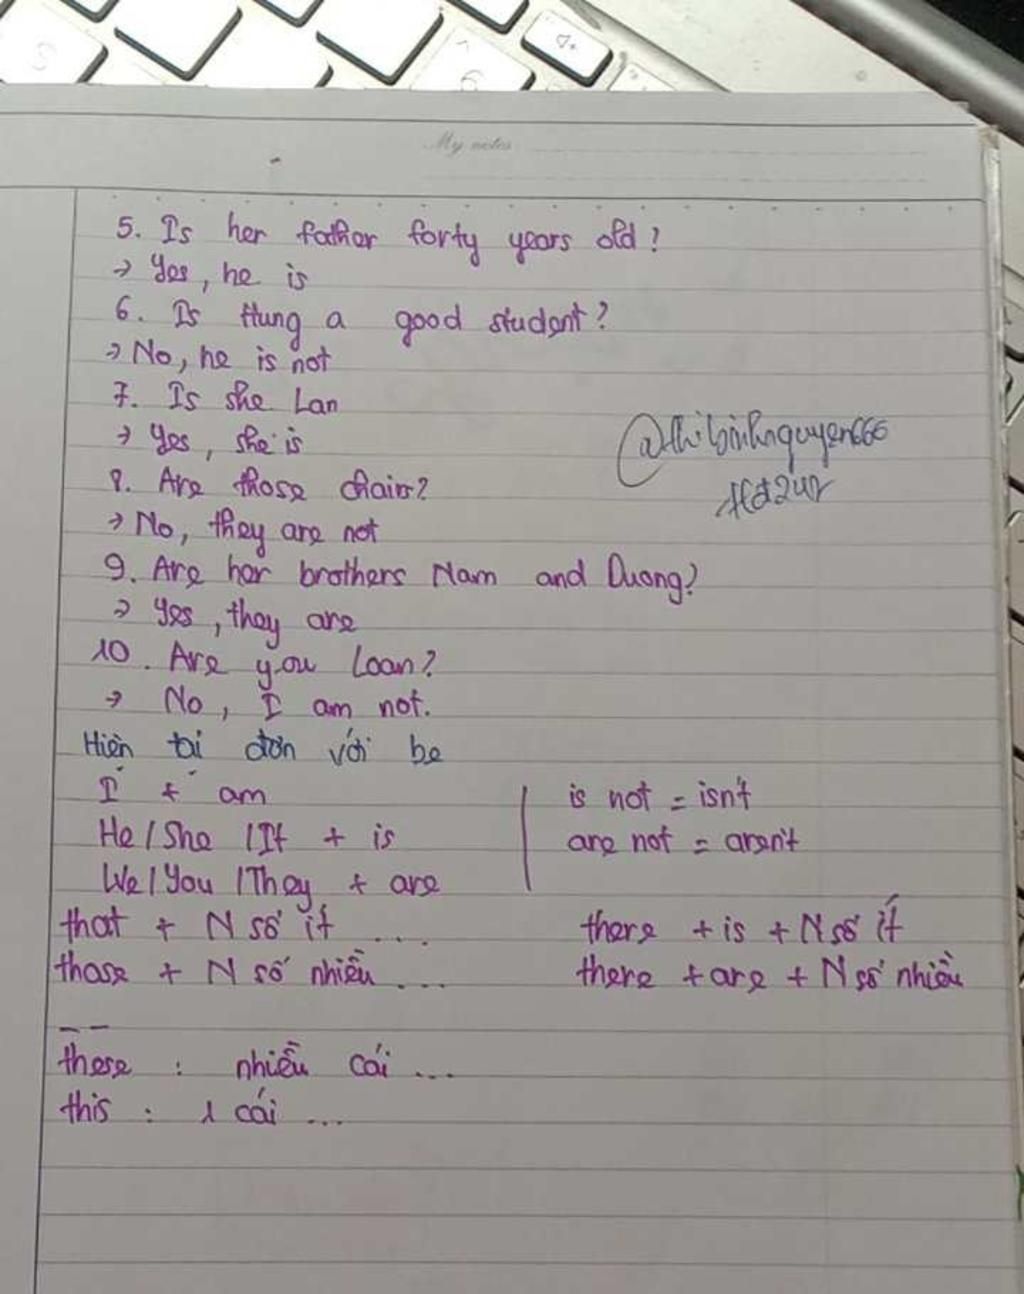 My notes
5. Is her father forty years old?
→ Yes, he is
6. Is Hung a good student?
→ No, he is not
7. Is she Lan
→ Yes, she is
8. Are those chairs?
→ No, they are not
9. Are her brothers Nam and Duong?
→ Yes, they are
10. Are you Loan?
→ No, I am not.
@thibinhnguyen666
Hiện tại đơn với be
I + am
He / She / It + is
We / You / They + are
is not = isn't
are not = aren't
that + N số ít ...
those + N số nhiều ...
there + is + N số ít
there + are + N số nhiều
these : nhiều cái ...
this : 1 cái ...